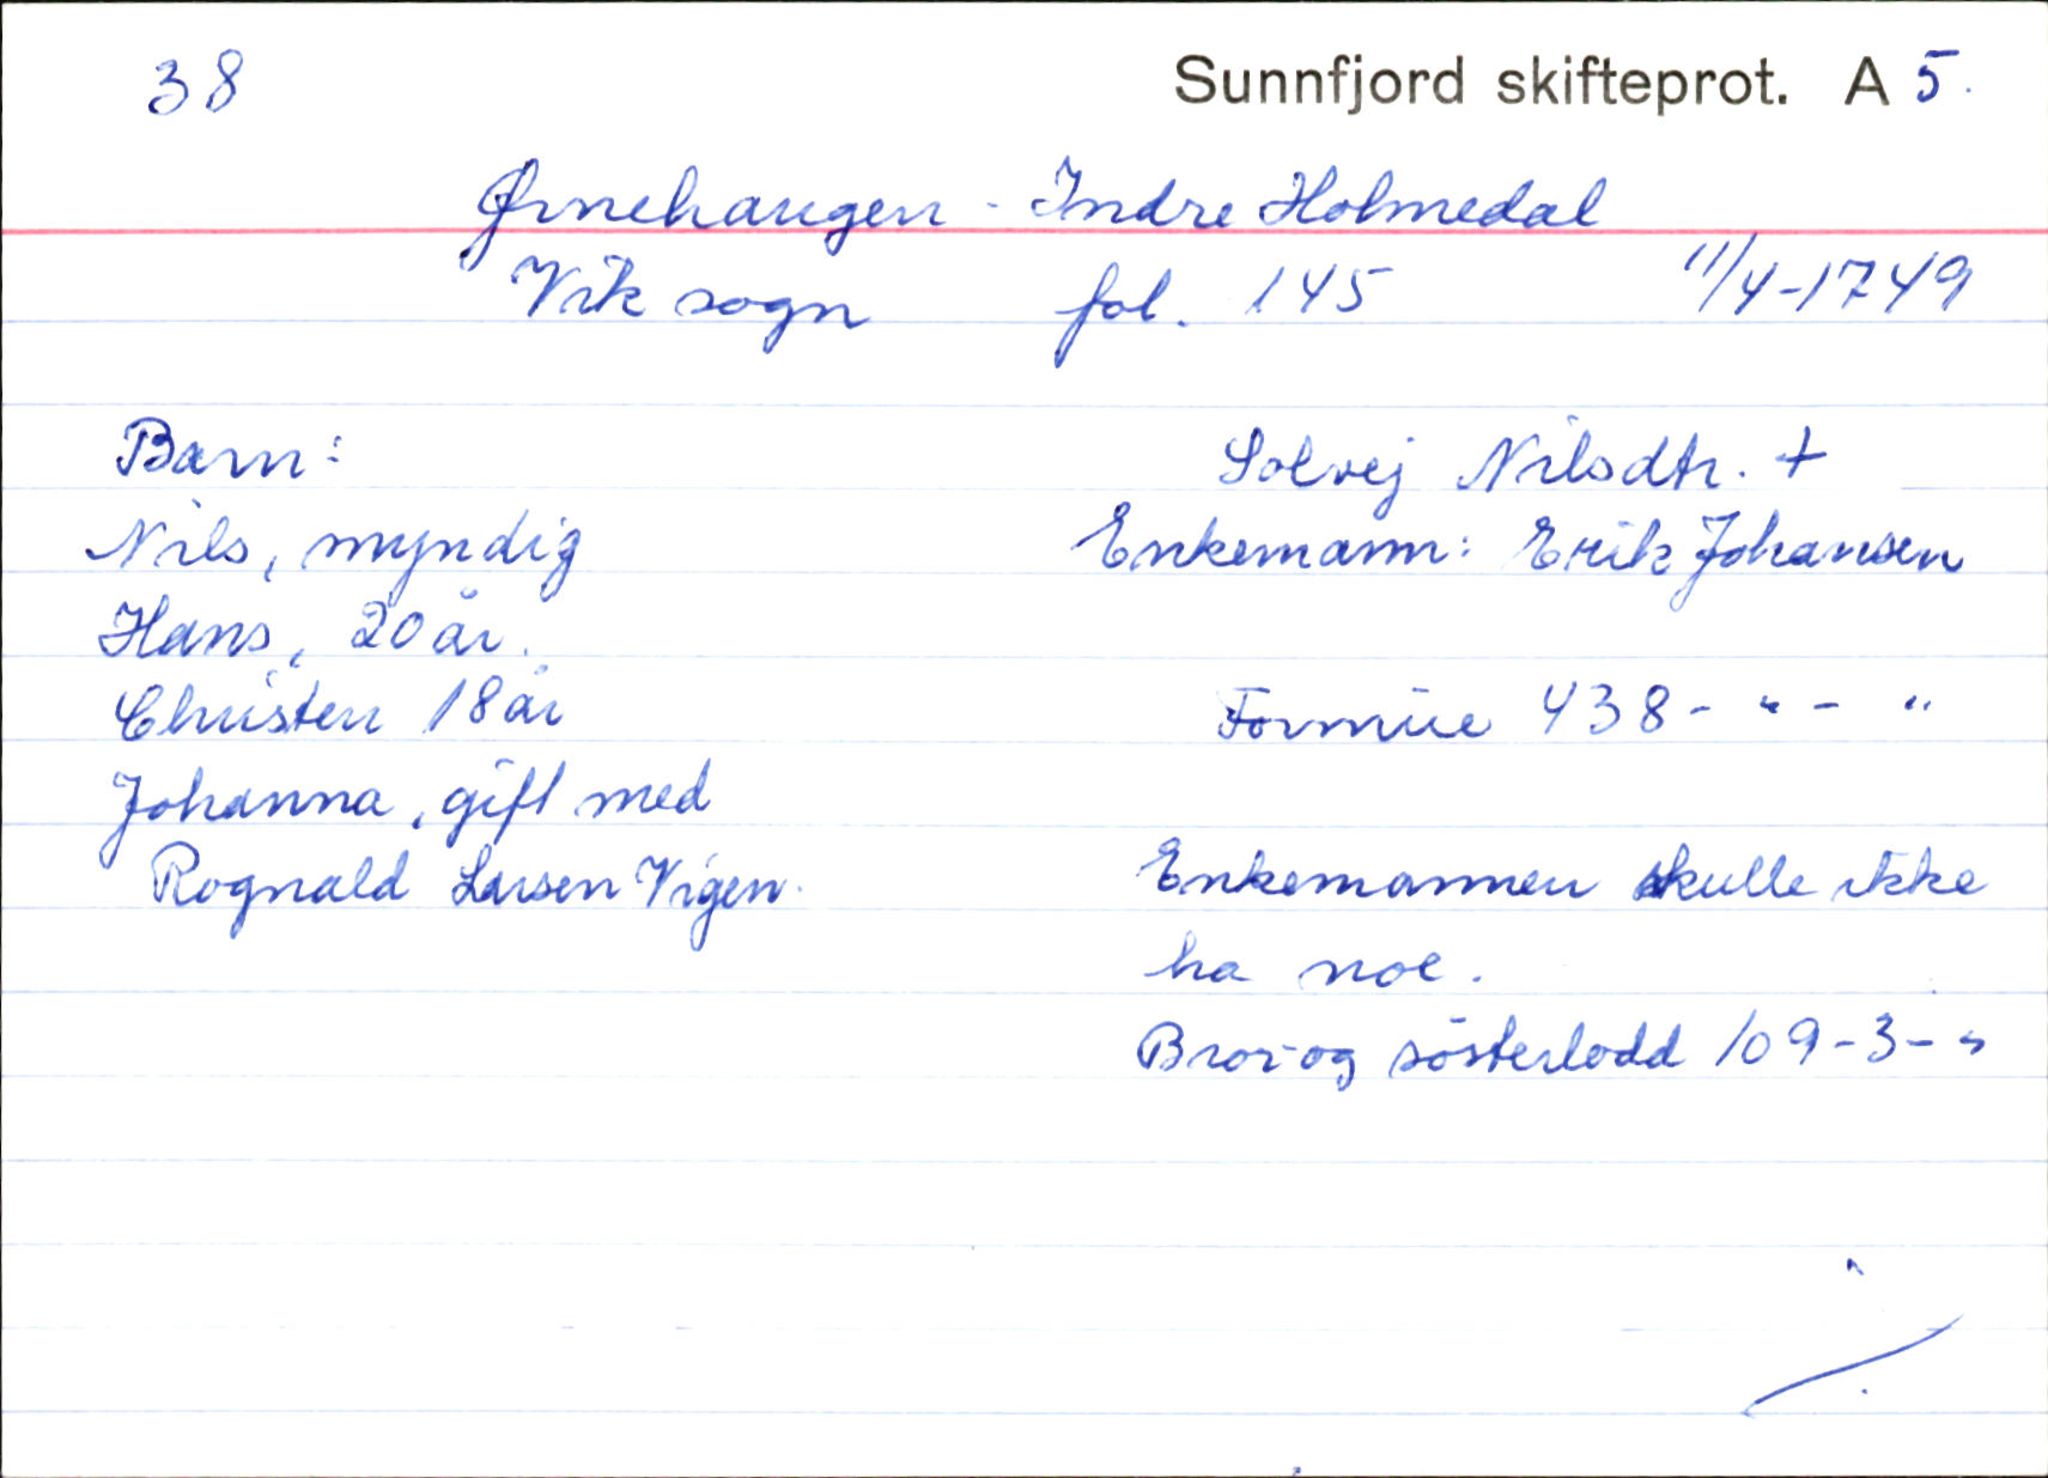 38
Sunnfjord skifteprot. A 5.
Ørnehaugen - Indre Holmedal
Vik sogn fol. 145 11/4-1749
Barn:
Nils, myndig
Hans, 20 år.
Christen 18 år
Johanna, gift med
Rognald Larsen Vigen.
Solvej Nilsdtr. +
Enkemann: Erik Johansen
Formue 438 - " - "
Enkemannen skulle ikke
ha noe.
Bror- og søsterlodd 109-3- "